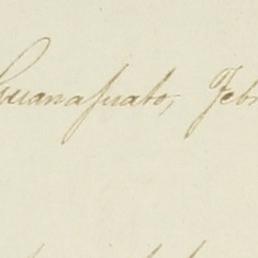 Guanajuato, Febr